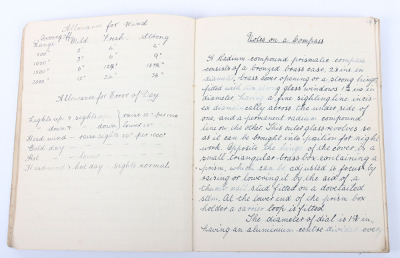 Allowance for Wind
Range Mild Fresh Strong
500ˣ 2' 4' 6'
1000ˣ 3' 6' 9'
1500ˣ 6'
2000ˣ 12' 24' 36'
Allowance for Error of Day
Light up & sights up
down & down
Head wind - raise sights per 1000ˣ
Cold day
Hot - lower
Rearwind & hot day - sights normal
Notes on a Compass
A Radium compound prismatic compass
consists of a bronzed brass case, 2¼ ins in
diameter, brass cover opening on a strong hinge,
fitted with strong glass windows 1⅝ ins in
diameter having a fine sighting line incis-
ed diametrically across the wider side of
one, and a permanent radium compound
line on the other. This outer glass revolves so
as it can be brought into position for night
work. Opposite the hinge of the cover is a
small triangular brass box containing a
prism, which can be adjusted to focus by
raising or lowering it by the aid of a
thumb nail stud fitted on a dovetailed
slim. At the lower end of the prism box
holder a carrier loop is fitted.
The diameter of dial is 1⅝ in,
having an aluminium centre divided every